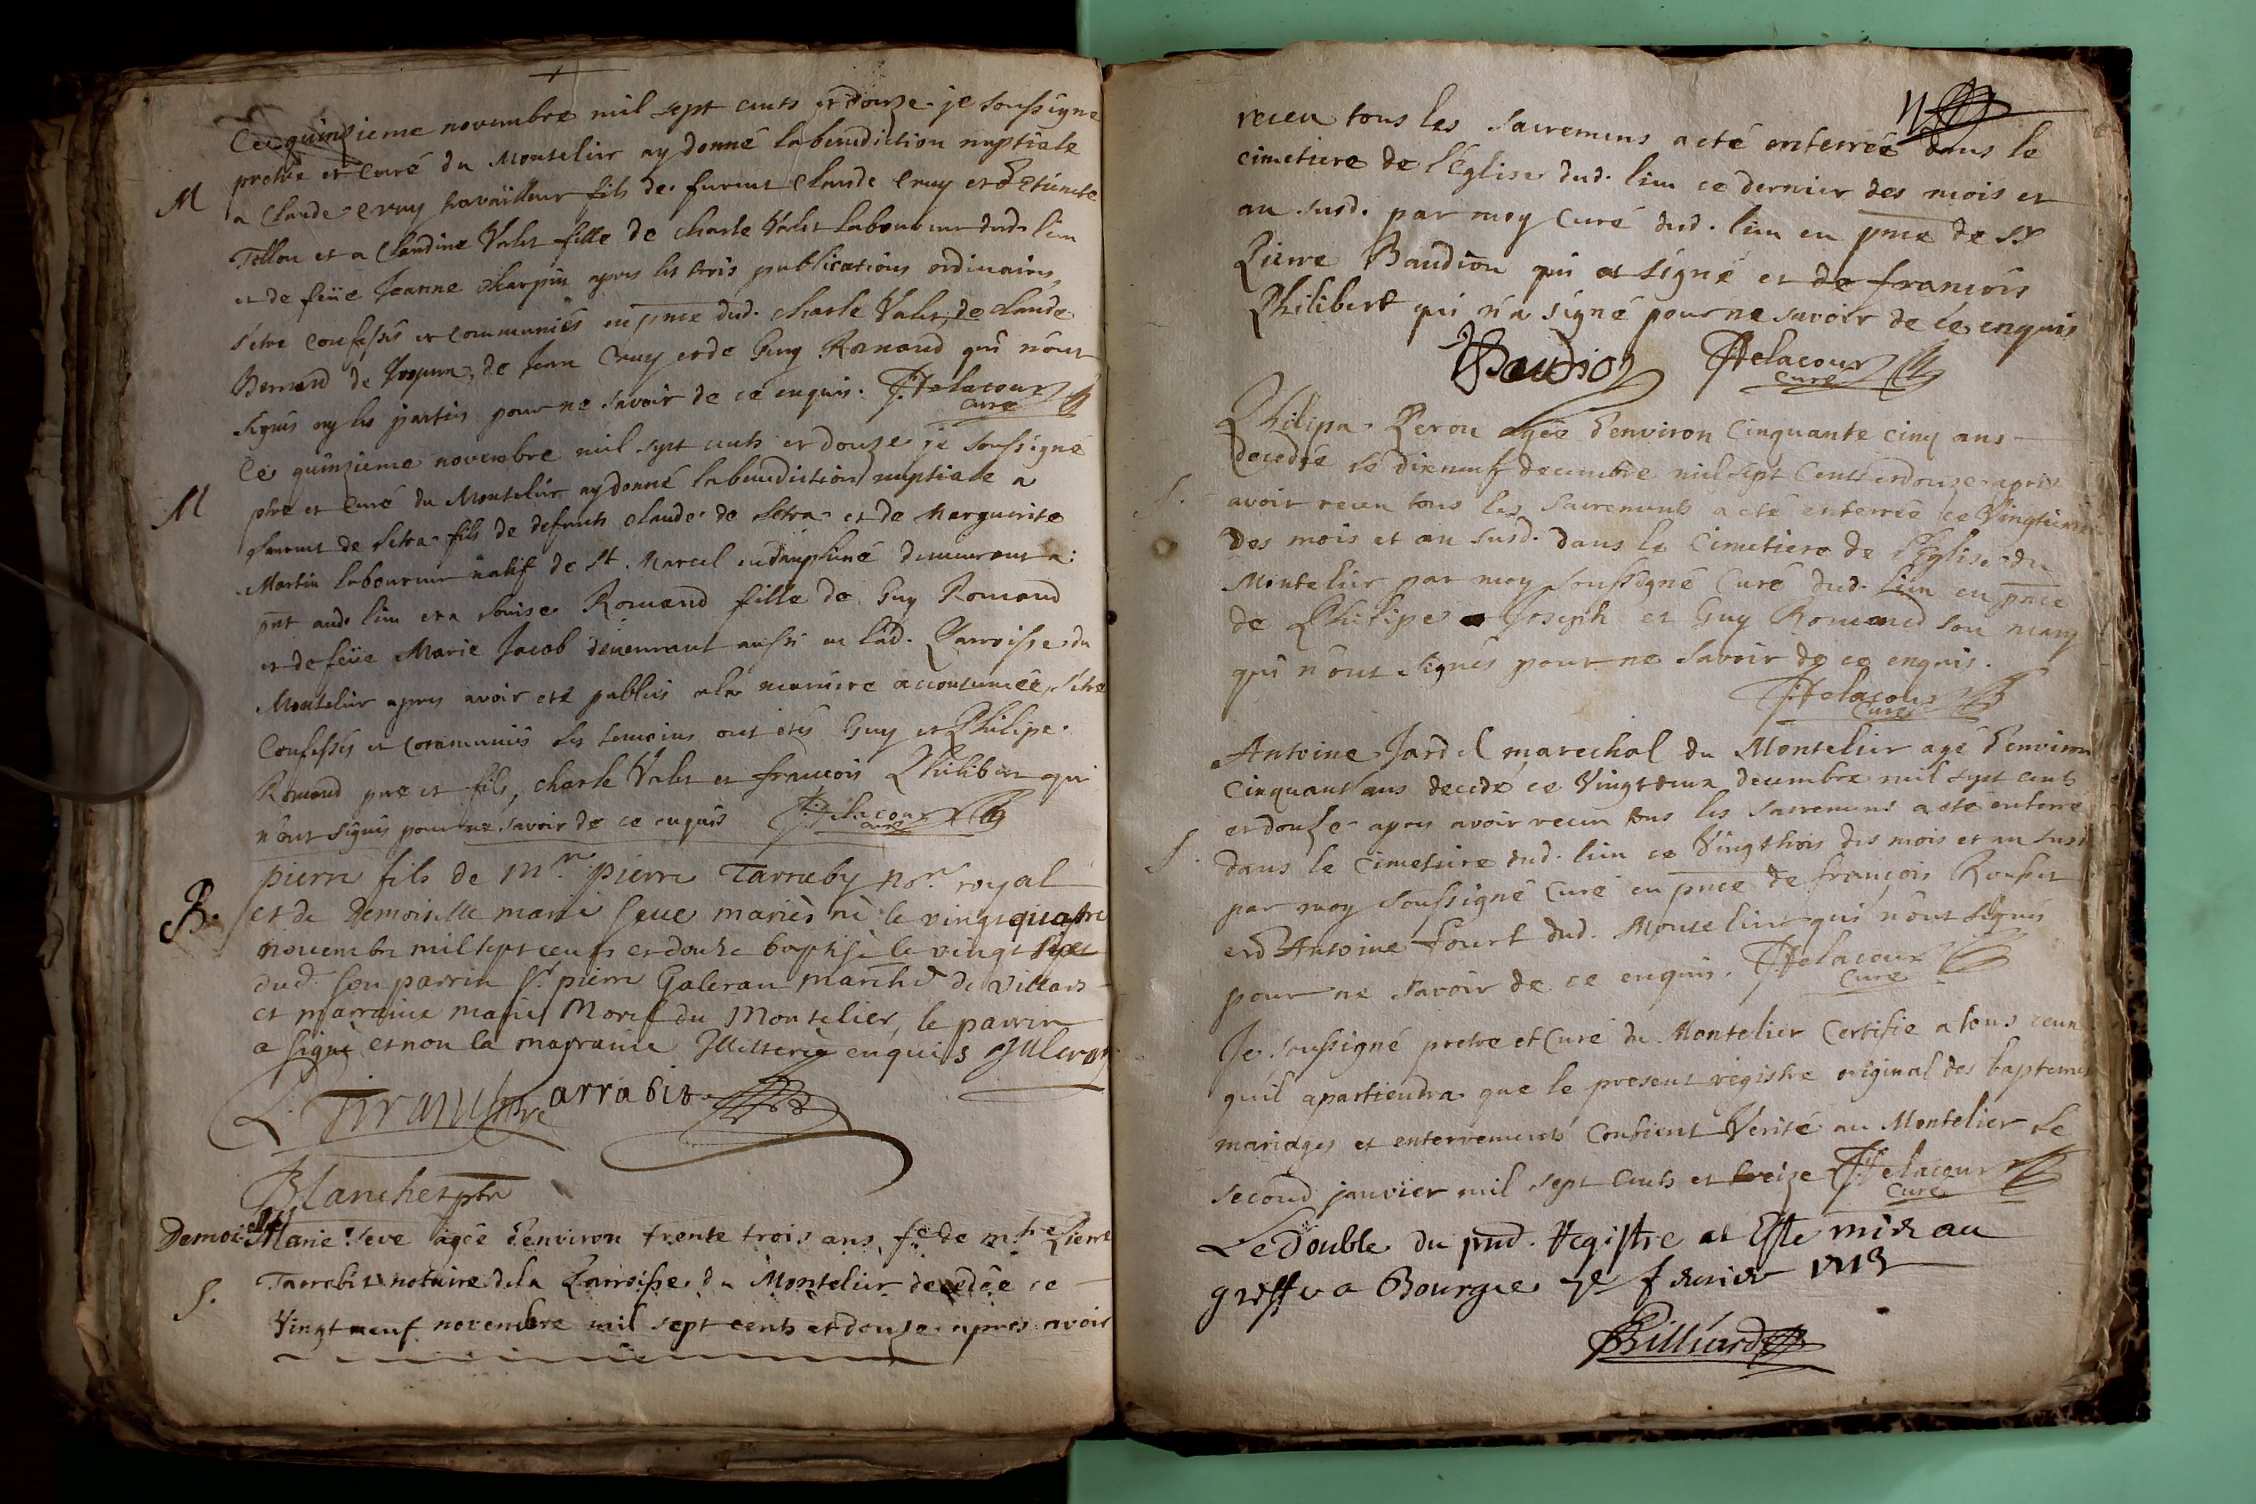 Ce quinzieme novembre mil sept cents et douze je soussigné
pretre et Curé du Montelier ay donné la benediction nuptiale
M
a Claude Cruy travailleur fils de furent Claude Cruy et d'Etiennette
Tollon et a Claudine Valet fille de charle Valet laboureur dud. lieu
et de feüe Jeanne charpin apres les trois publications ordinaires
s'etre confessés et communiés en pnce dud. charle Valet, de claude
Bernard de de Jean Cruy et de Guy Romand qui n'ont
signés ny les parties pour ne savoir de ce enquis. Delacour
Curé
Ce quinzieme novembre mil sept cents et douze je soussigné
M
ptre et Curé du Montelier ay donné la benediction nuptiale a
Laurent de Setra fils de defunts claude de Setra et de Marguerite
Martin laboureur natif de St. Marcel en dauphiné demeurant a
pnt aud. lieu et a Louise Romand fille de Guy Romand
et de feüe Marie Jacob demeurant aussi en lad. Parroisse du
Montelier apres avoir eté publiés a la maniere accoutumée, s'etre
Confessés et communiés les temoins ont étés Guy et Philipe
Romand pere et fils, charle Valet et francois Philibert qui
n'ont signés pour ne savoir de ce enquis Delacour
curé
pierre fils de Mr. pierre Tarraby nore. royal
B.
et de Demoiselle marie seve mariés né le vingt quatre
novembre mil sept cents et douze baptisé le vingt sept
dud. son parrin Sr. pierre Galeran marchd. de villars
et marraine marie Morel du Montelier, le parrin
a signé et non la marraine Illitterée enquis Galeran
Tarrabit
Blanchet ptre
Demoille Marie Seve agée d'environ trente trois ans fe. de mtre Pierre
S.
Tarrabit notaire de la Parroisse du Montelier decedée ce
Vingt neuf novembre mil sept cents et douze apres avoir
receu tous les sacremens a eté enterrée dans le
cimetiere de l'Eglise dud. lieu ce dernier des mois et
an susd. par moy Curé dud. lieu en pnce de Sr
Pierre Baudion qui a signé et de francois
Philibert qui n'a signé pour ne savoir de ce enquis
Baudion Delacour
curé
Philipa Peron agée d'environ Cinquante cinq ans
decedée le dixneuf decembre mil sept cents et douze apres
S.
avoir receu tous les Sacrements a eté enterrée ce Vingtieme
des mois et an susd. dans le Cimetiere de l'Eglise du
Montelier par moy soussigné Curé dud. lieu en pnce
de Philipe Joseph et Guy Romand son mary
qui n'ont signés pour ne savoir de ce enquis.
Delacour
Curé
Antoine Jardel marechal du Montelier agé d'environ
Cinquant ans decedé ce Vingt deux decembre mil sept cents
et douze apres avoir receu tous les Sacremens a eté enterré
S.
dans le Cimetiere dud. lieu ce Vingt trois des mois et an susd.
par moy soussigné Curé en pnce de françois Rousset
et d'Antoine fourt dud. Montelier qui n'ont signés
pour ne savoir de ce enquis. Delacour
Curé
Je soussigné pretre et Curé du Montelier Certifie a tous ceux
quil apartiendra que le present registre original des baptemes
mariages et enterrements Contient Verité au Montelier le
second janvier mil sept cents et treize Delacour
Curé
Le double du pnd. Registre at Este mis au
greffe a Bourg ce 7e fevrier 1713
Billiard